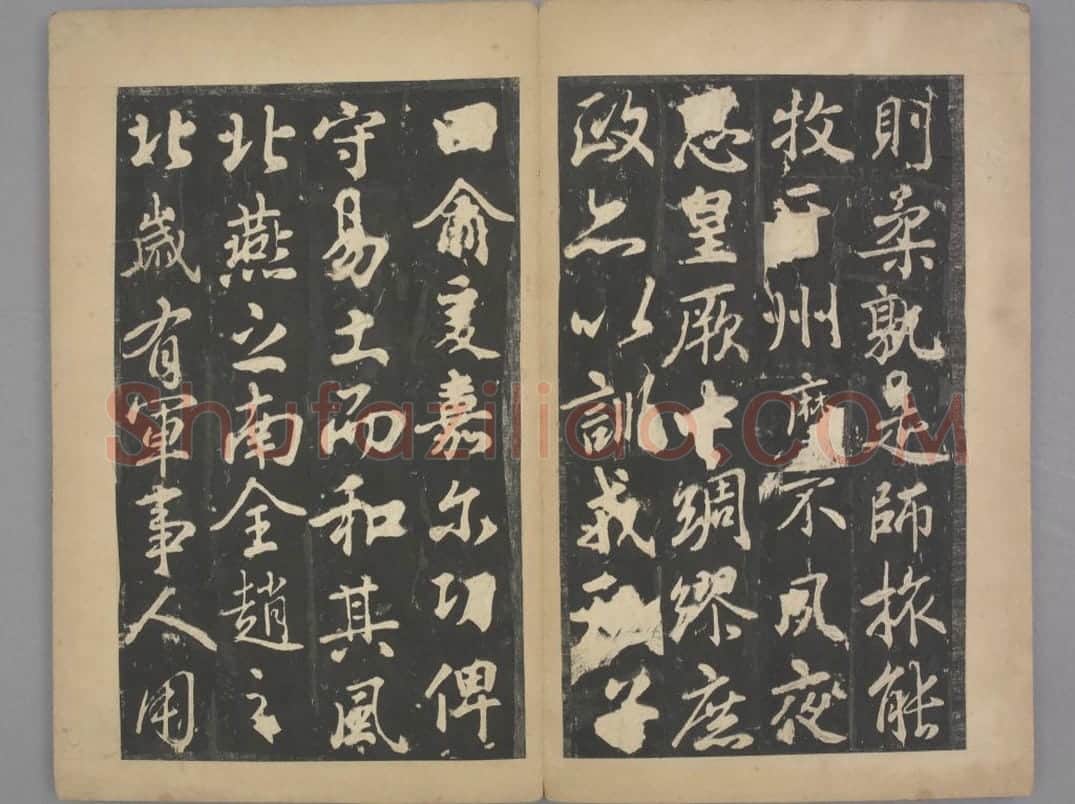 則柔孰是師旅能
牧州靡不夙夜
皇厥綢繆庶
政亦以訓戎天子
曰俞爰嘉尔功俾
守易土而和其風
北燕之南全趙之
北歲有軍事人用
Shufaziliao.COM